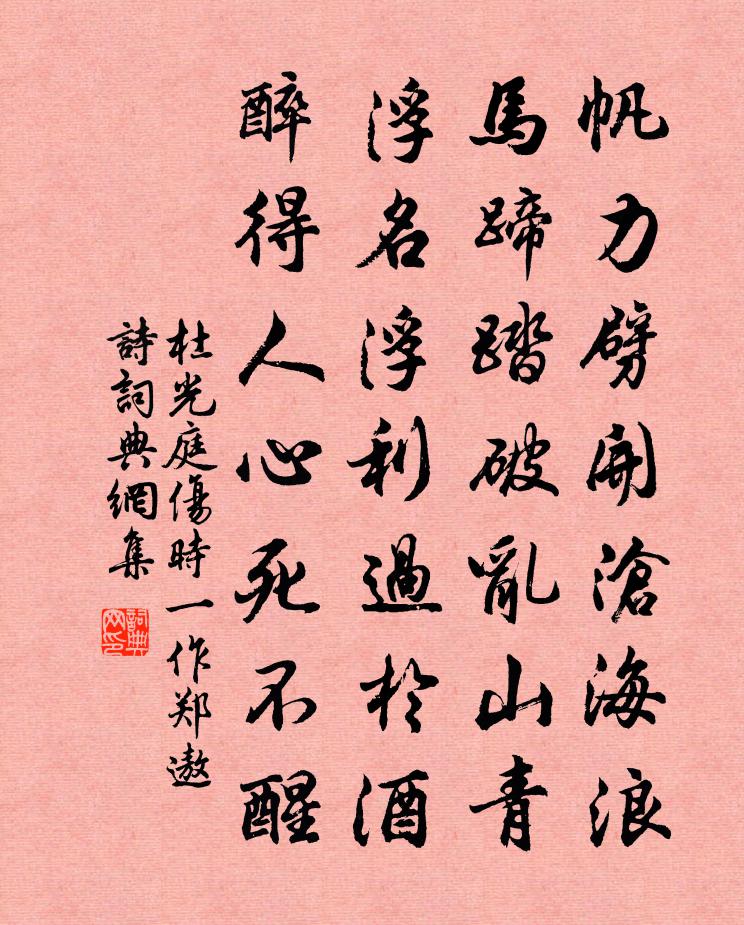 帆力劈開滄海浪
馬蹄踏破亂山青
浮名浮利過於酒
醉得人心死不醒
杜光庭傷時一作郑遨
詩詞典網集
詞典
网印